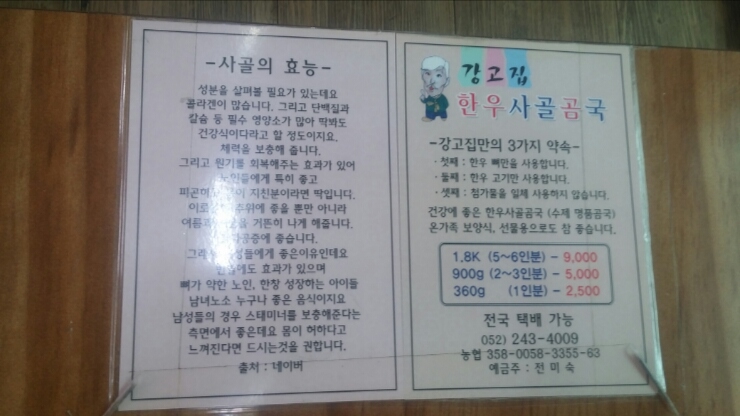 -사골의 효능-
성분을 살펴볼 필요가 있는데요
콜라겐이 많습니다. 그리고 단백질과
칼슘 등 필수 영양소가 많아 딱봐도
건강식이다라고 할 정도이지요.
체력을 보충해 줍니다.
그리고 원기를 회복해주는 효과가 있어
노인들에게 특히 좋고
지친분이라면 딱입니다.
추위에 좋을 뿐만 아니라
거뜬히 나게 해줍니다.
좋습니다.
좋은이유인데요
효과가 있으며
뼈가 약한 노인, 한창 성장하는 아이들
남녀노소 누구나 좋은 음식이지요
남성들의 경우 스태미너를 보충해준다는
측면에서 좋은데요 몸이 허하다고
느껴진다면 드시는것을 권합니다.
출처 : 네이버
강고집
한우사골곰국
-강고집만의 3가지 약속-
· 첫째 : 한우 뼈만을 사용합니다.
· 둘째 : 한우 고기만 사용합니다.
· 셋째 : 첨가물을 일체 사용하지 않습니다.
건강에 좋은 한우사골곰국 (수제 명품곰국)
온가족 보양식, 선물용으로도 참 좋습니다.
1.8K (5~6인분) - 9,000
900g (2~3인분) - 5,000
360g (1인분) - 2,500
전국 택배 가능
052) 243-4009
농협 358-0058-3355-63
예금주 : 전미숙